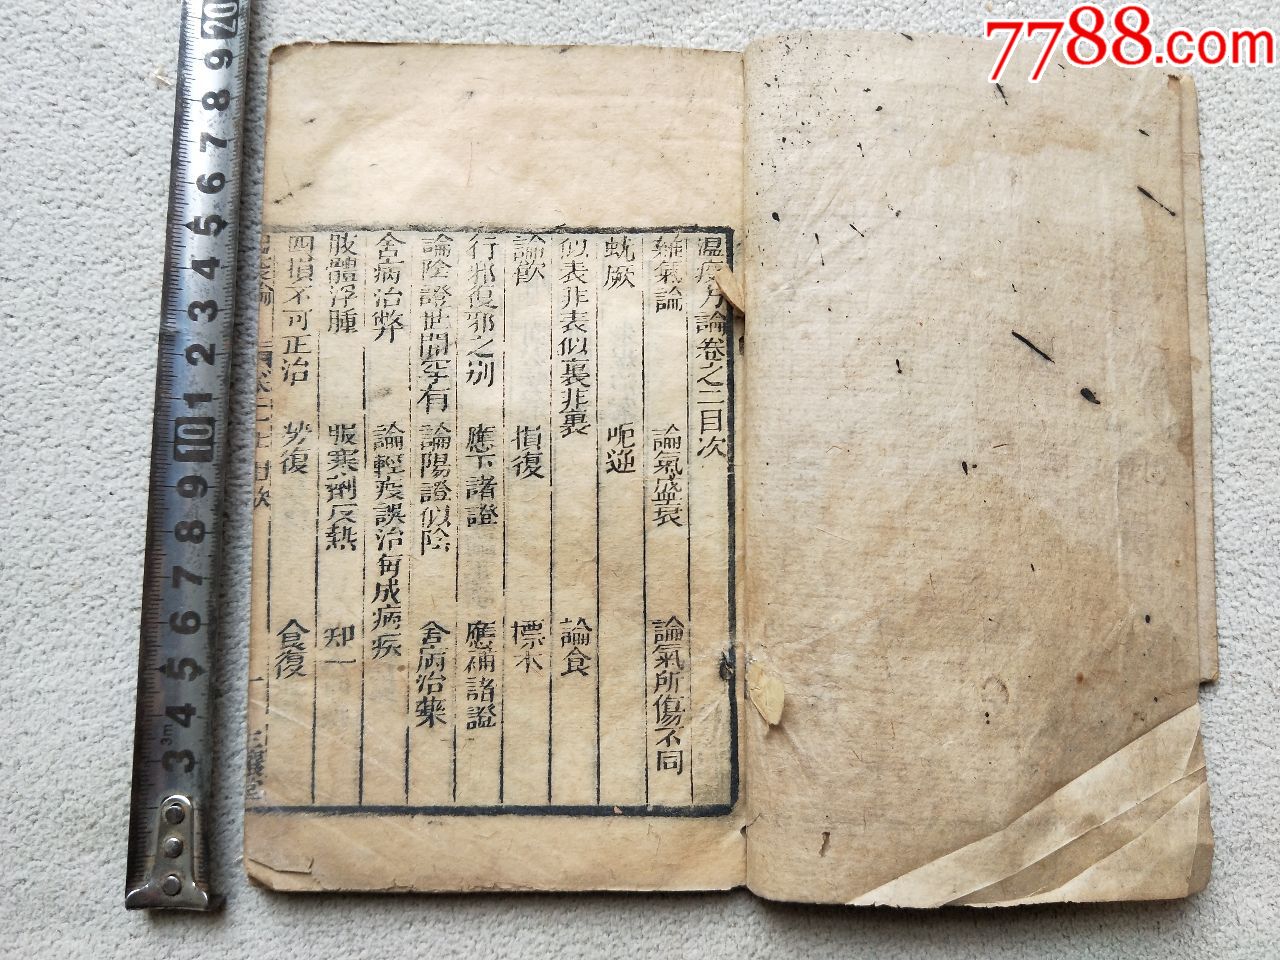 7788.com
温疫方論卷之二目次
雜氣論 論氣盛衰 論氣所傷不同
蚘厥 呃逆
似表非表似裏非裏 論食
論飲 損復 標本
行邪伏邪之别 應下諸證 應補諸證
論陰證世間罕有 論陽證似陰 舍病治藥
舍病治弊 論輕疫誤治每成痼疾
肢體浮腫 服寒劑反熱 知一
四損不可正治 勞復 食復
20
9
8
7
6
5
4
3
2
1
10
9
8
7
6
5
4
3m
3